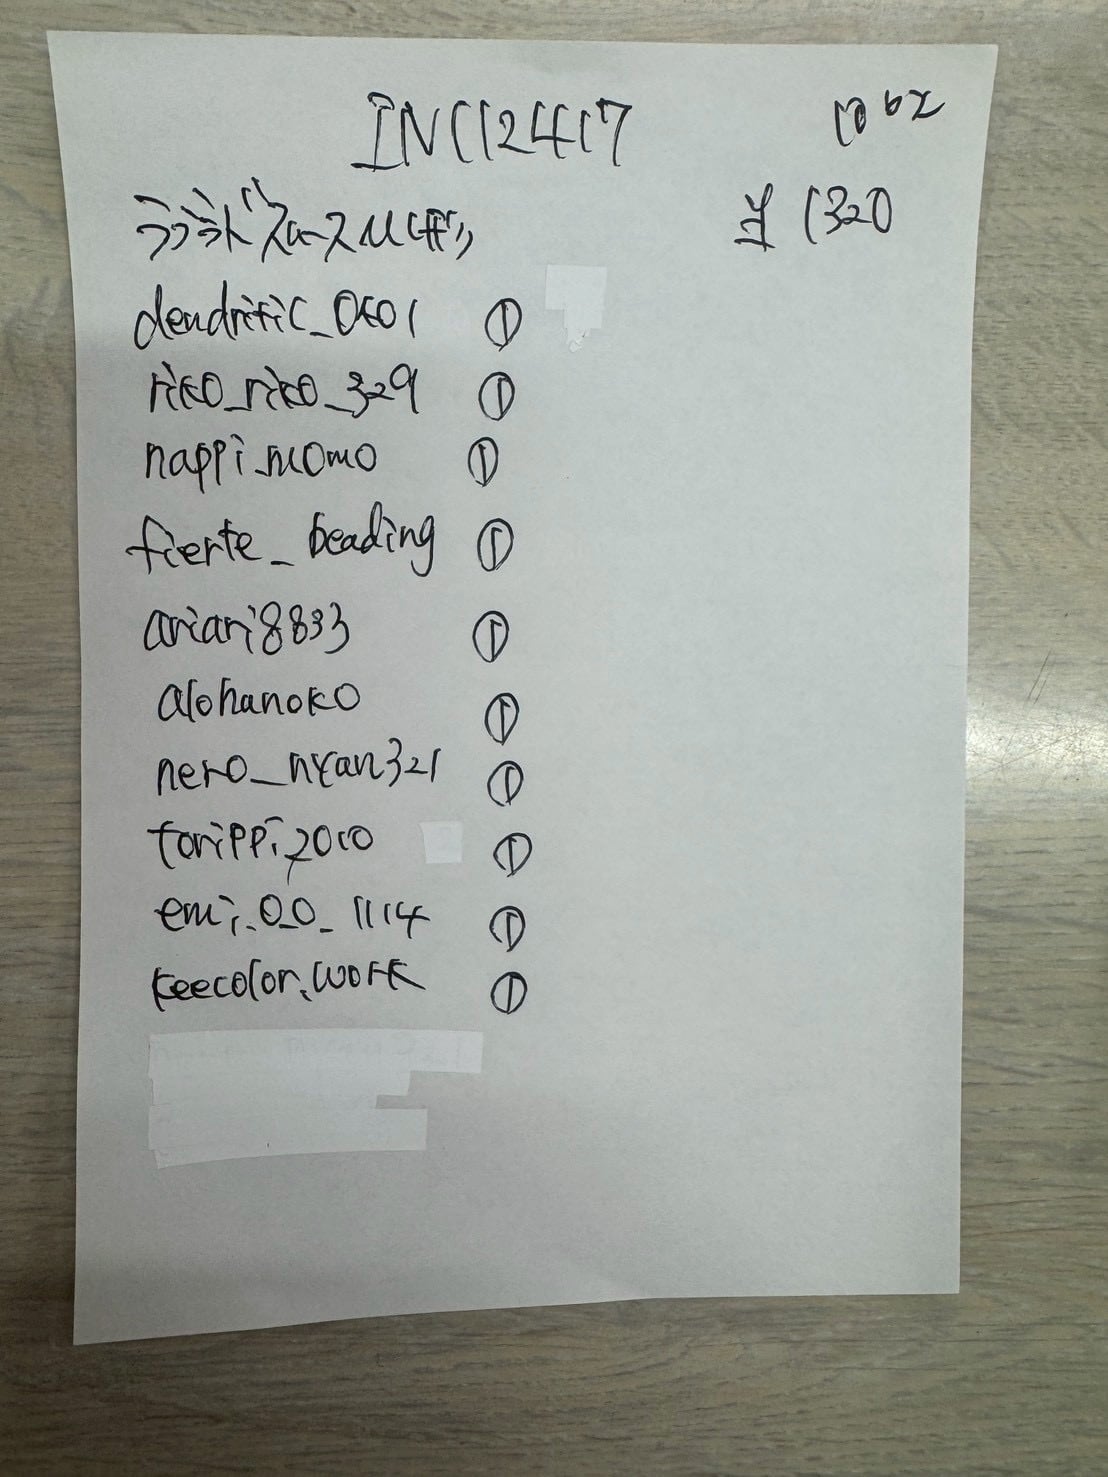 INC112417
10 bz
ラフランドスロース
¥1320
dendritic_0601 ①
riko_riko_329 ①
nappi_momo ①
fierte_beading ①
ariari8833 ①
alohanoko ①
nero_nyan321 ①
torippi2010 ①
emi_0.0_1114 ①
keecolor.work ①